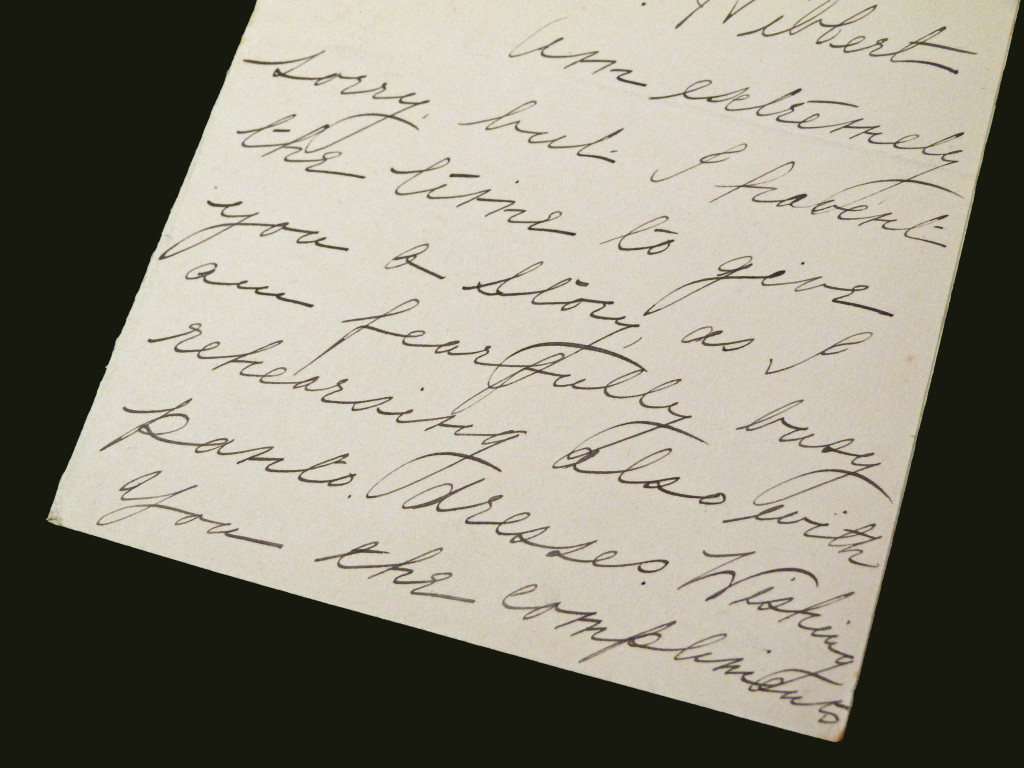 Hibbert
am extremely
sorry, but I havent
the time to give
you a story, as I
am fearfully busy
rehearsing also with
panto. dresses. Wishing
you the compliments